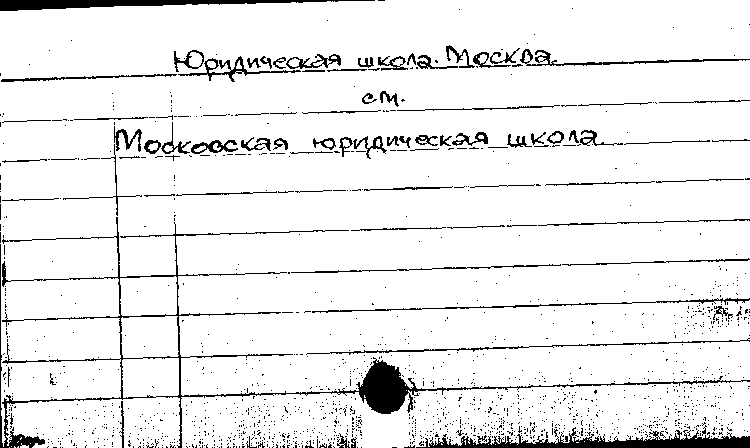 Юридическая школа. Москва.
см.
Московская юридическая школа.